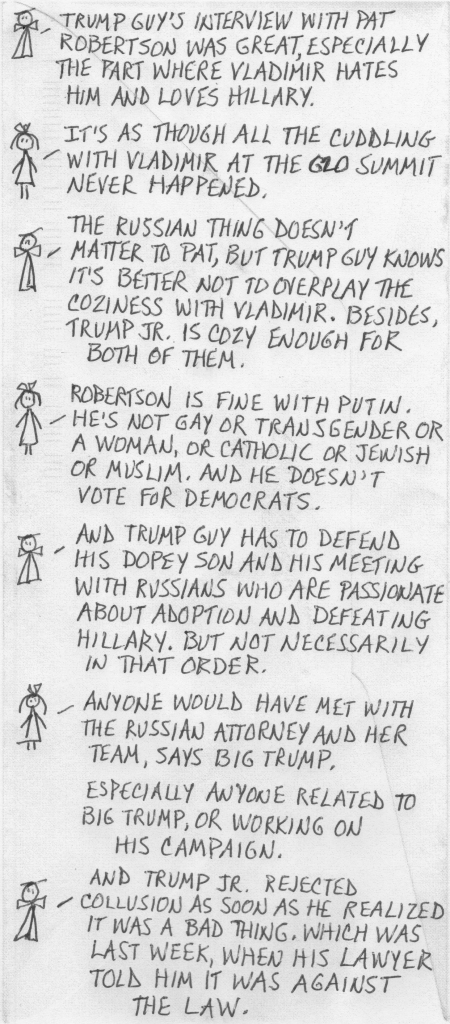 TRUMP GUY'S INTERVIEW WITH PAT
ROBERTSON WAS GREAT, ESPECIALLY
THE PART WHERE VLADIMIR HATES
HIM AND LOVES HILLARY.
IT'S AS THOUGH ALL THE CUDDLING
WITH VLADIMIR AT THE G20 SUMMIT
NEVER HAPPENED.
THE RUSSIAN THING DOESN'T
MATTER TO PAT, BUT TRUMP GUY KNOWS
IT'S BETTER NOT TO OVERPLAY THE
COZINESS WITH VLADIMIR. BESIDES,
TRUMP JR. IS COZY ENOUGH FOR
BOTH OF THEM.
ROBERTSON IS FINE WITH PUTIN.
HE'S NOT GAY OR TRANSGENDER OR
A WOMAN, OR CATHOLIC OR JEWISH
OR MUSLIM. AND HE DOESN'T
VOTE FOR DEMOCRATS.
AND TRUMP GUY HAS TO DEFEND
HIS DOPEY SON AND HIS MEETING
WITH RUSSIANS WHO ARE PASSIONATE
ABOUT ADOPTION AND DEFEATING
HILLARY. BUT NOT NECESSARILY
IN THAT ORDER.
ANYONE WOULD HAVE MET WITH
THE RUSSIAN ATTORNEY AND HER
TEAM, SAYS BIG TRUMP.
ESPECIALLY ANYONE RELATED TO
BIG TRUMP, OR WORKING ON
HIS CAMPAIGN.
AND TRUMP JR. REJECTED
COLLUSION AS SOON AS HE REALIZED
IT WAS A BAD THING. WHICH WAS
LAST WEEK, WHEN HIS LAWYER
TOLD HIM IT WAS AGAINST
THE LAW.